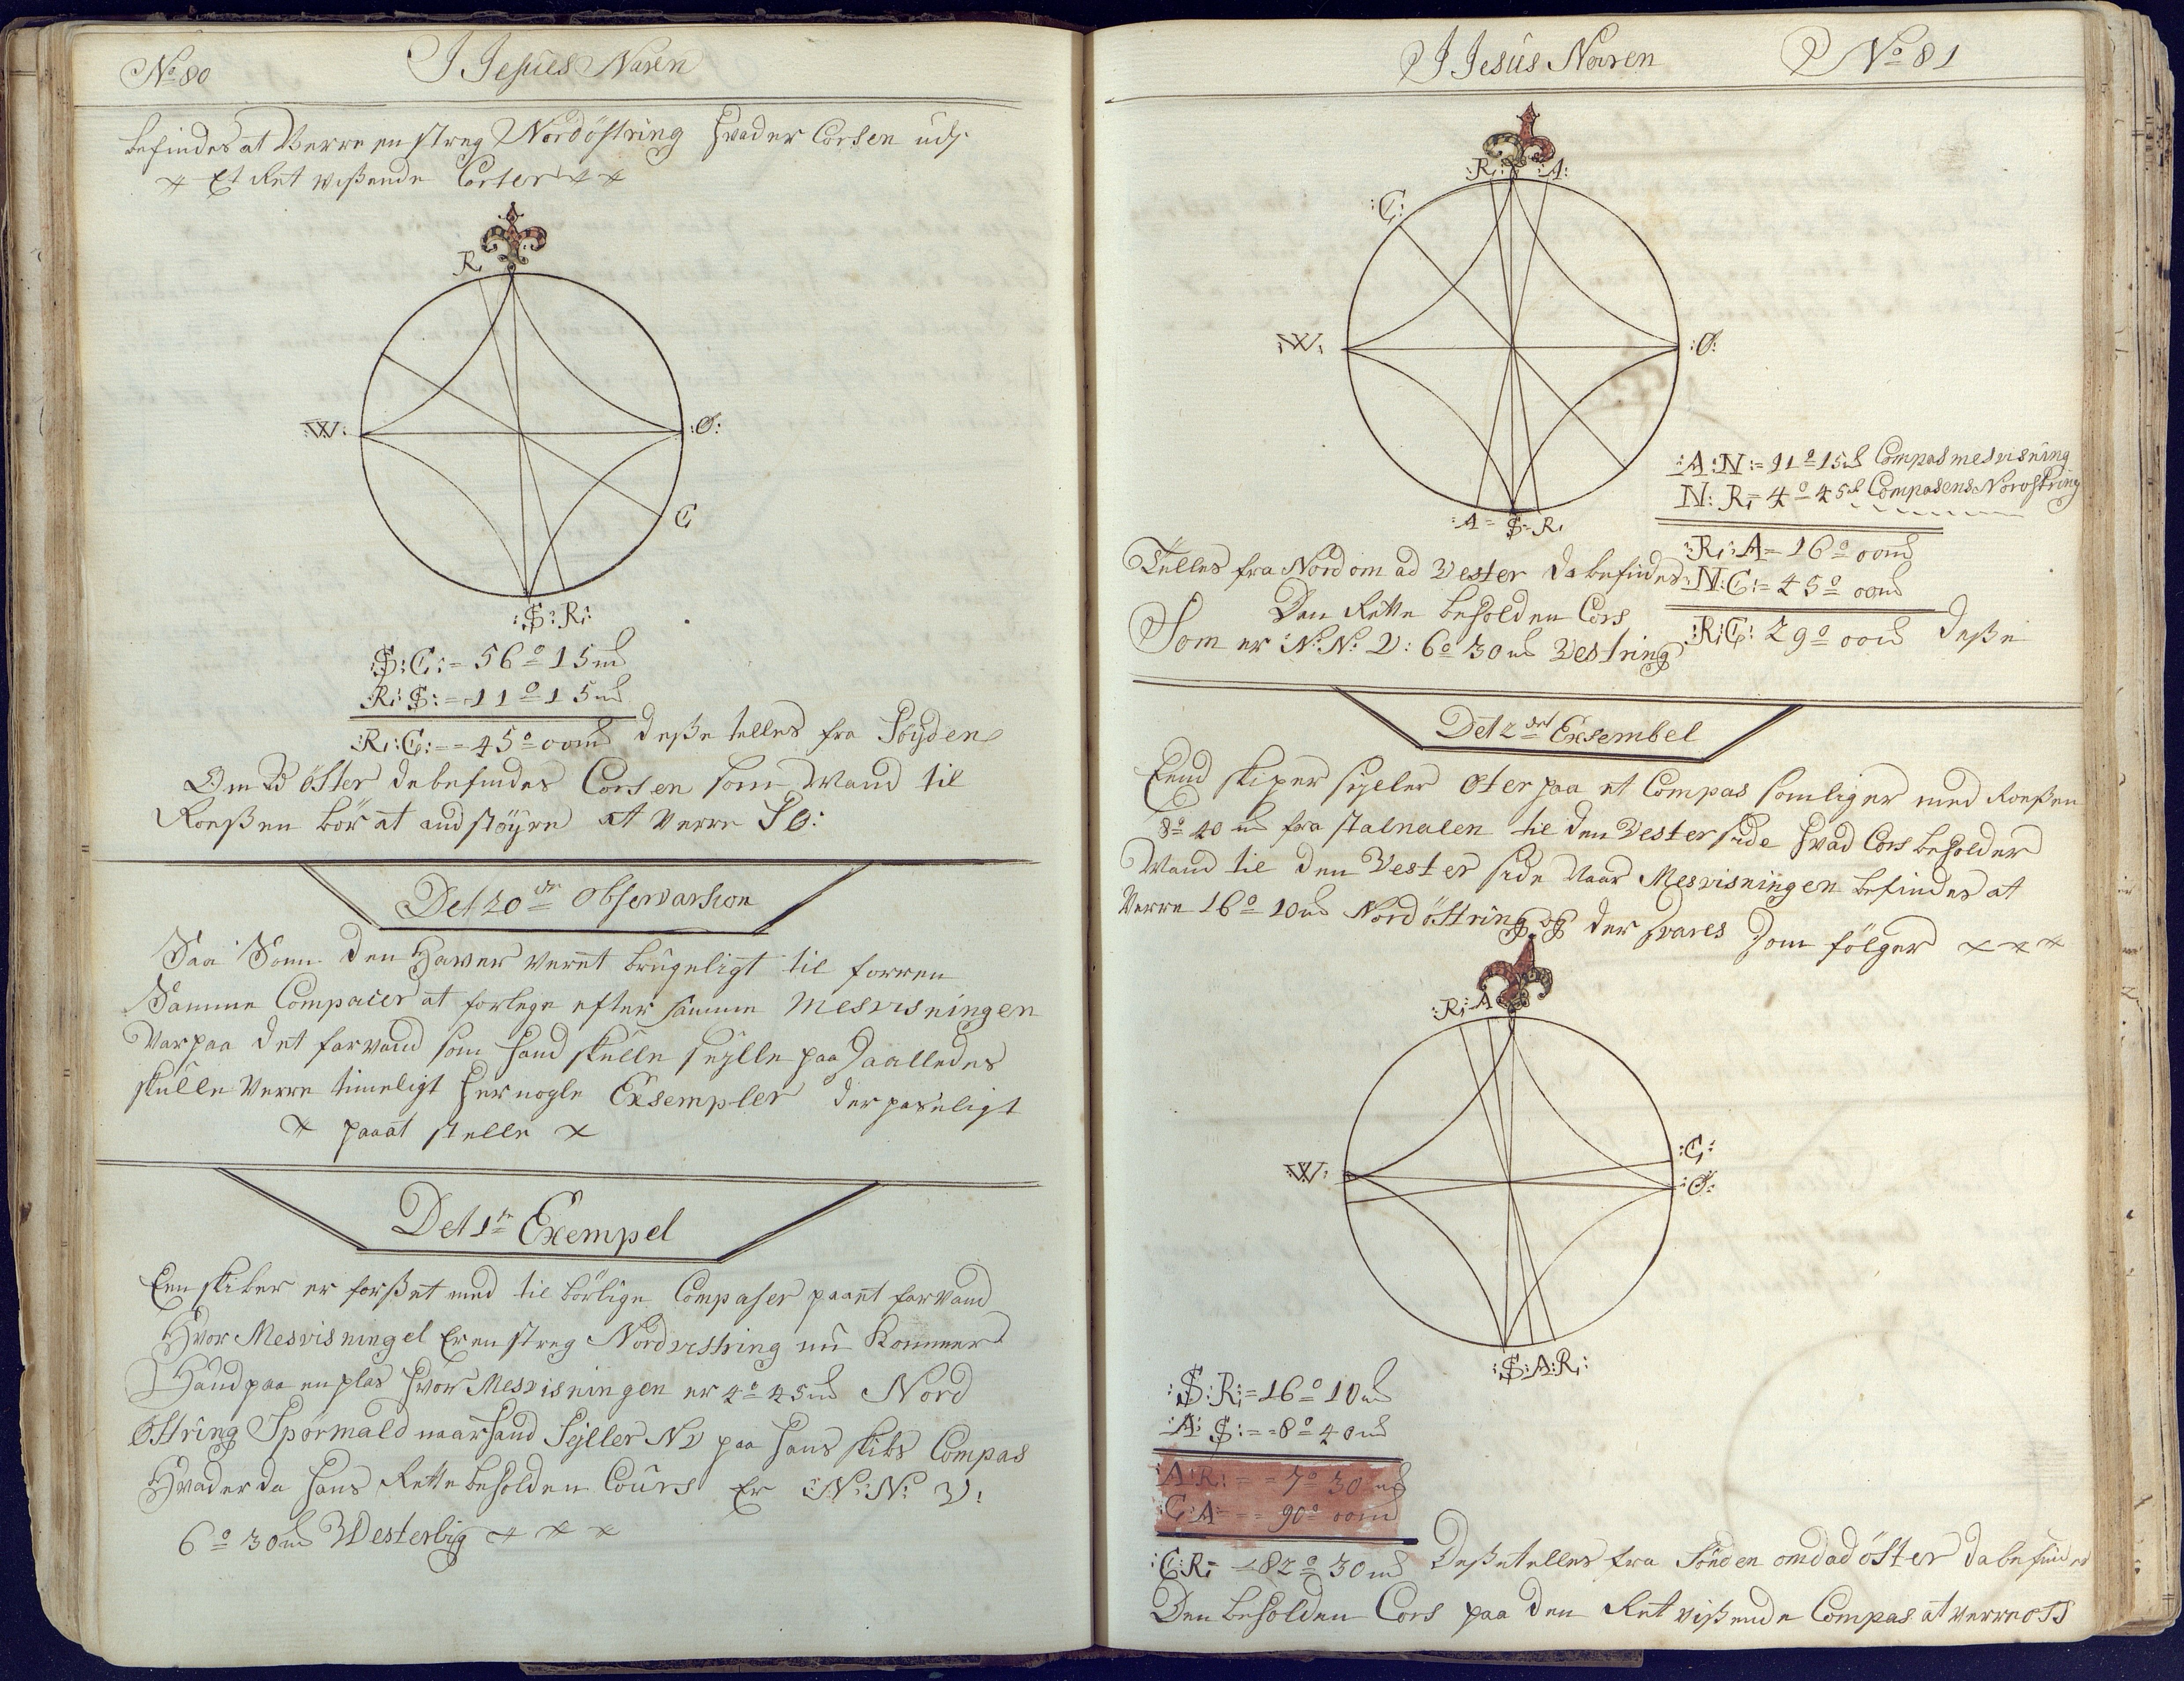 No 80
J Jesues Naven
befindes at Verre en streg Nordöstring hvader Corsen udj
Et Ret vißende Corter
R
W:
:O:
C
:S: R:
:S:C:= 56° 15m
R: S:= 11° 15m
:R:C:== 45° 00m deße telles fra Söyden
Om B öster da befindes Corsen som Mand til
Roeßen bör at and støyre at Verre SO:
Det 20de Observarsion
Saa Som den Hawer Vernt brugeligt til forren
Samme Compacer at forlege efter samme Mesvisningen
Varpaa det farvand som hand skulle seylle paa Saalledes
skulle Verre timeligt her nogle Exsempler der paseligt
paaat stelle
Det 1te Exempel
Een skiber er forßet med til börlige Compaser paa et farvand
Hvor Mesvisningel Er en streg Nordvestring nu kommer
Hand paa en plas hvor Mesvisningen er 4° 45m Nord
Östring Spörmald naar hand Seyller NV paa hans skibs Compas
Hvad er da hans Rette beholden Cours Er :N:N: V:
6° 30m Westerlig
J Jesus Naven
No 81
R: A:
:C:
:W:
:O:
:A= S= R:
:A:N:= 11° 15m Compas mesvisning
N: R= 4° 45m Compasens Norostring
:R: A= 16° 00m
Telles fra Nord om ad Vester da befindes :N:C:= 45° 00m
Den Rette beholden Cors
:R:C: 29° 00m deße
Som er N: N: V: 6° 30m Vestring
Det 2det Exsembel
Eend skiper seyeler Öster paa et Compas som liger med Roeßen
8° 40m fra stalnalen til den Vester side hvad Cors beholder
Mand til den Vester side Naar Mesvisningen befindes at
Verre 16° 10m Nord östring og der svares Som fölger
:R: A
:W:
:C:
:O:
:S: A: R:
:S: R:= 16° 10m
:A: S:== 8° 40m
:A:R:== 7° 30m
:C:A=== 90° 00m
:C:R= =82° 30m Deße telles fra Sönden om ad öster da befindes
Den beholden Cors paa den Ret vißende Compas at verre OTS